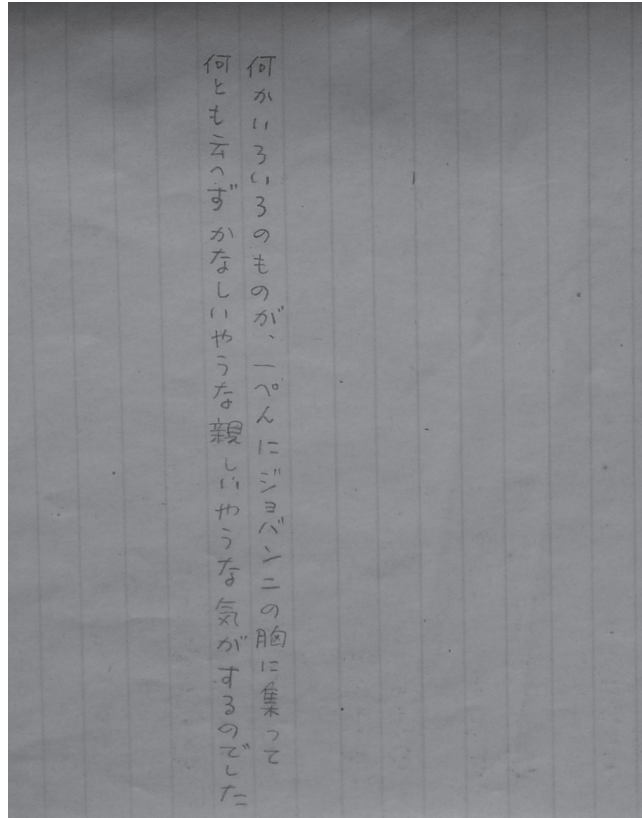 何かいろいろのものが、一ぺんにジョバンニの胸に集って
何とも云へずかなしいやうな親しいやうな気がするのでした